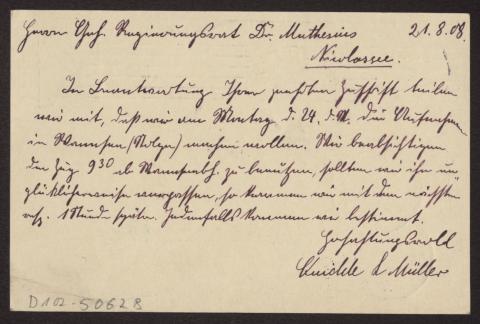 Herrn Geh. Regierungsrat Dr. Muthesius 21.8.08.
Nicolassee.
In Beantwortung Ihrer geehrten Zuschrift teilen
wir mit, daß wir am Montag d. 24. d. M. die Aufnahmen
in Wannsee () machen wollen. Wir beabsichtigen
den Zug 9 30 ab Wannseebh. zu benutzen, sollten wir ihn un-
glücklicherweise verpassen, so kommen wir mit dem nächsten
resp. 1 Stunde später. Jedenfalls kommen wir bestimmt.
Hochachtungsvoll
& Müller
D 102-5062 B